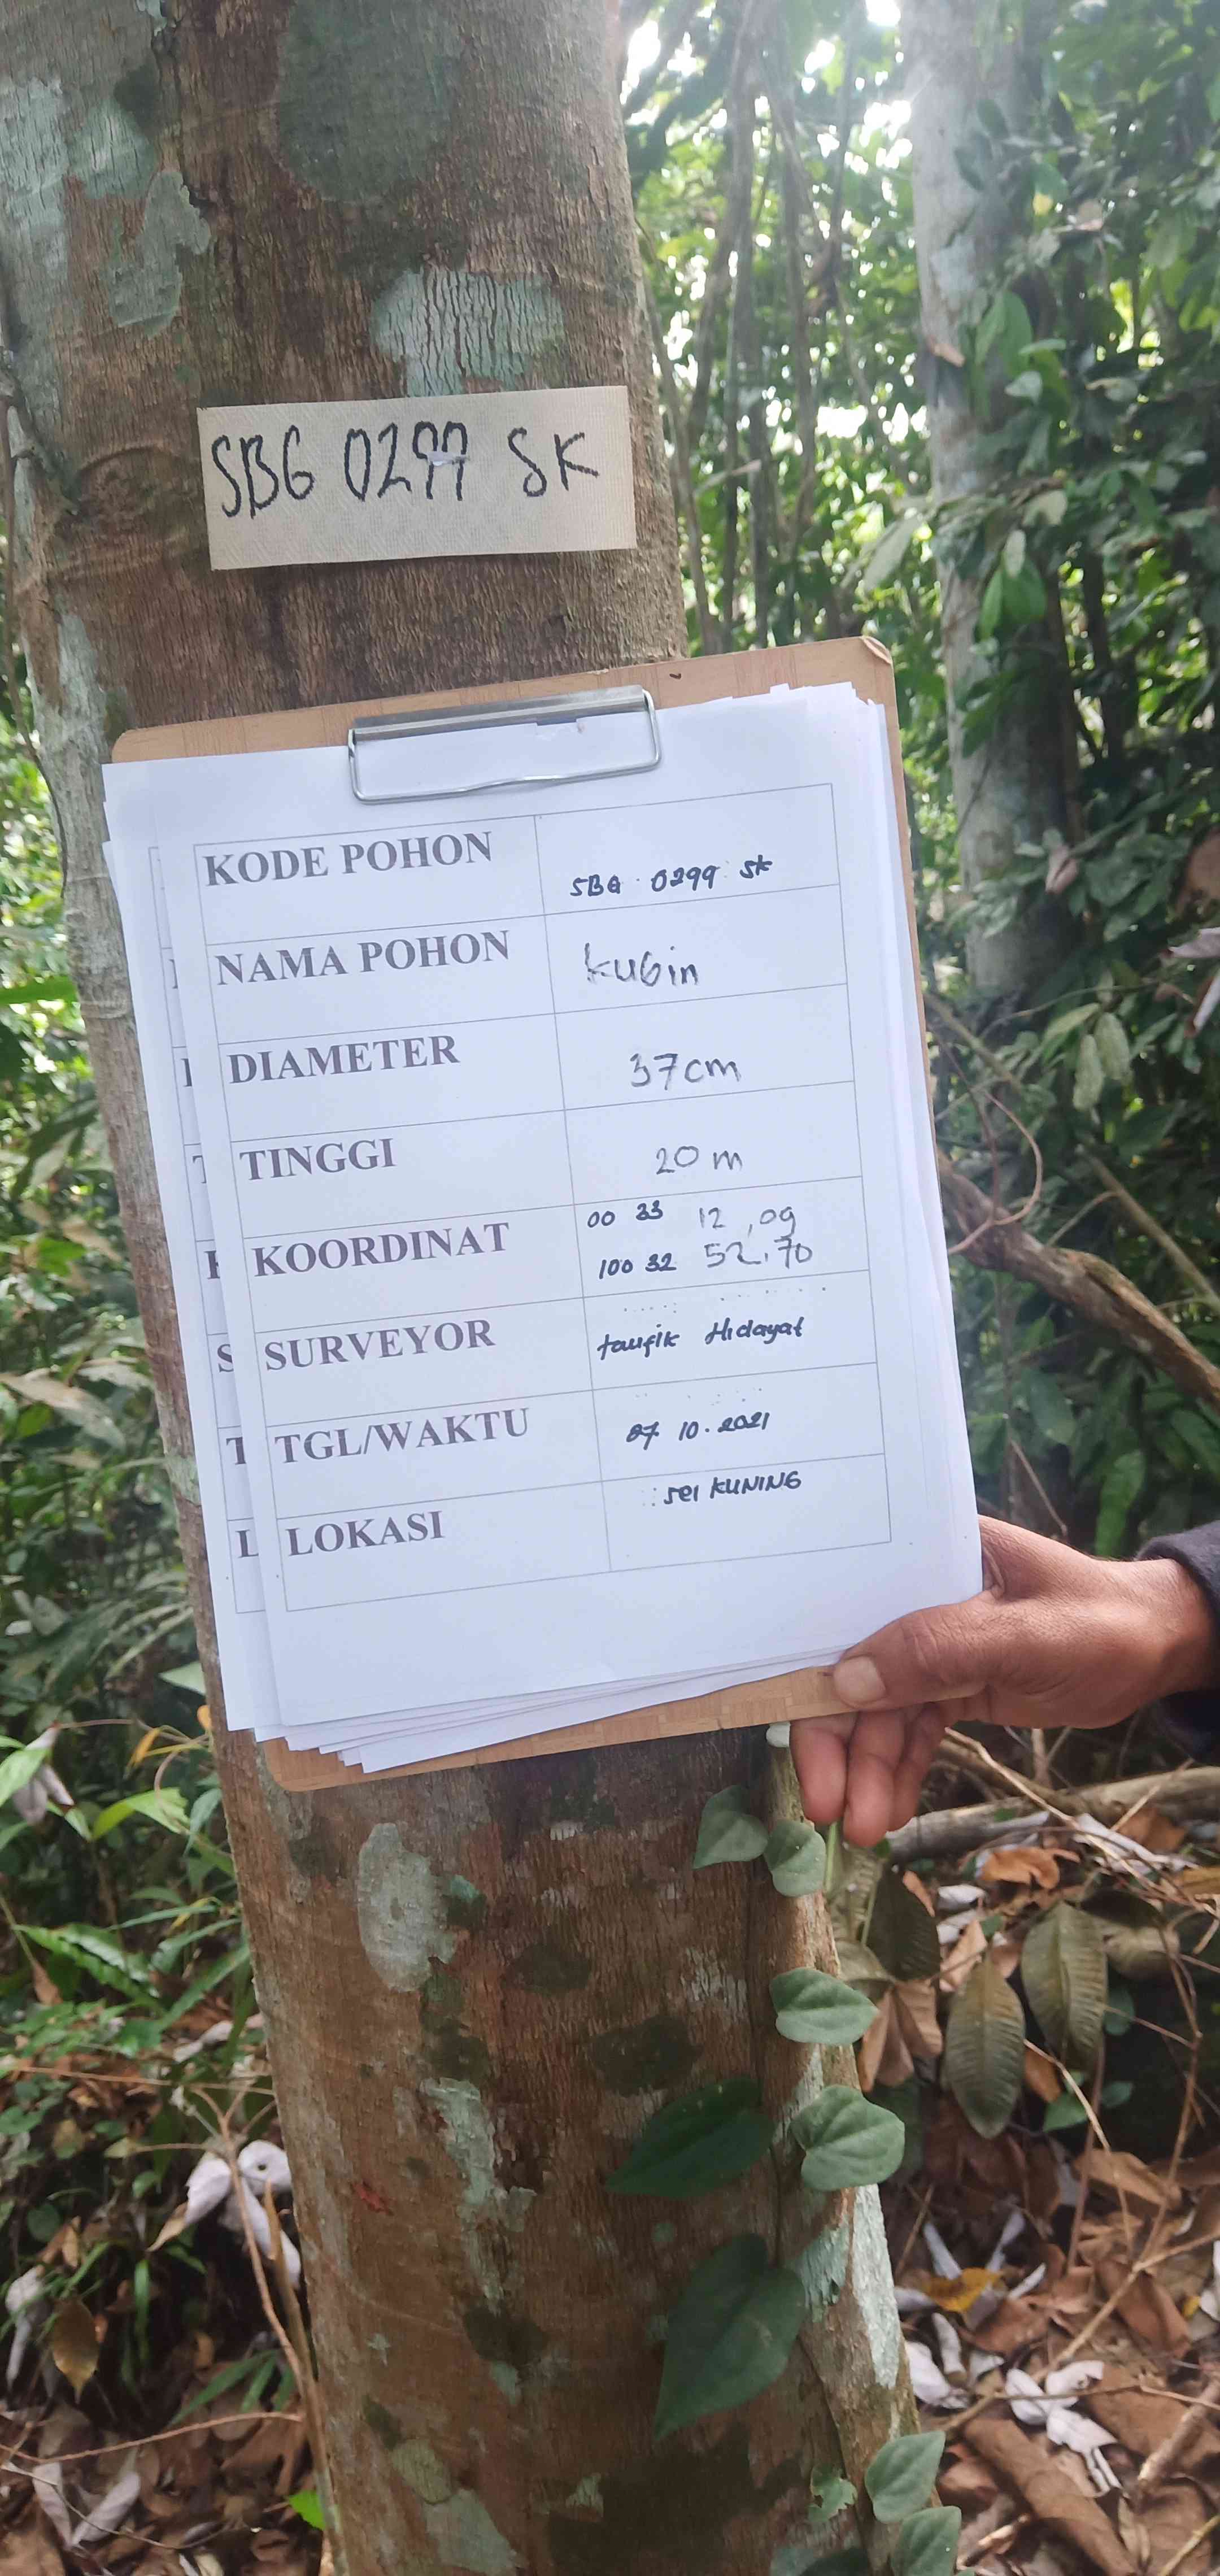 SBG 0299 SK
KODE POHON SBG 0299 SK
NAMA POHON kubin
DIAMETER 37cm
TINGGI 20 m
KOORDINAT 00 33 12,09
100 32 52.70
SURVEYOR taufik Hidayat
TGL/WAKTU 07 10.2021
LOKASI sei KUNING